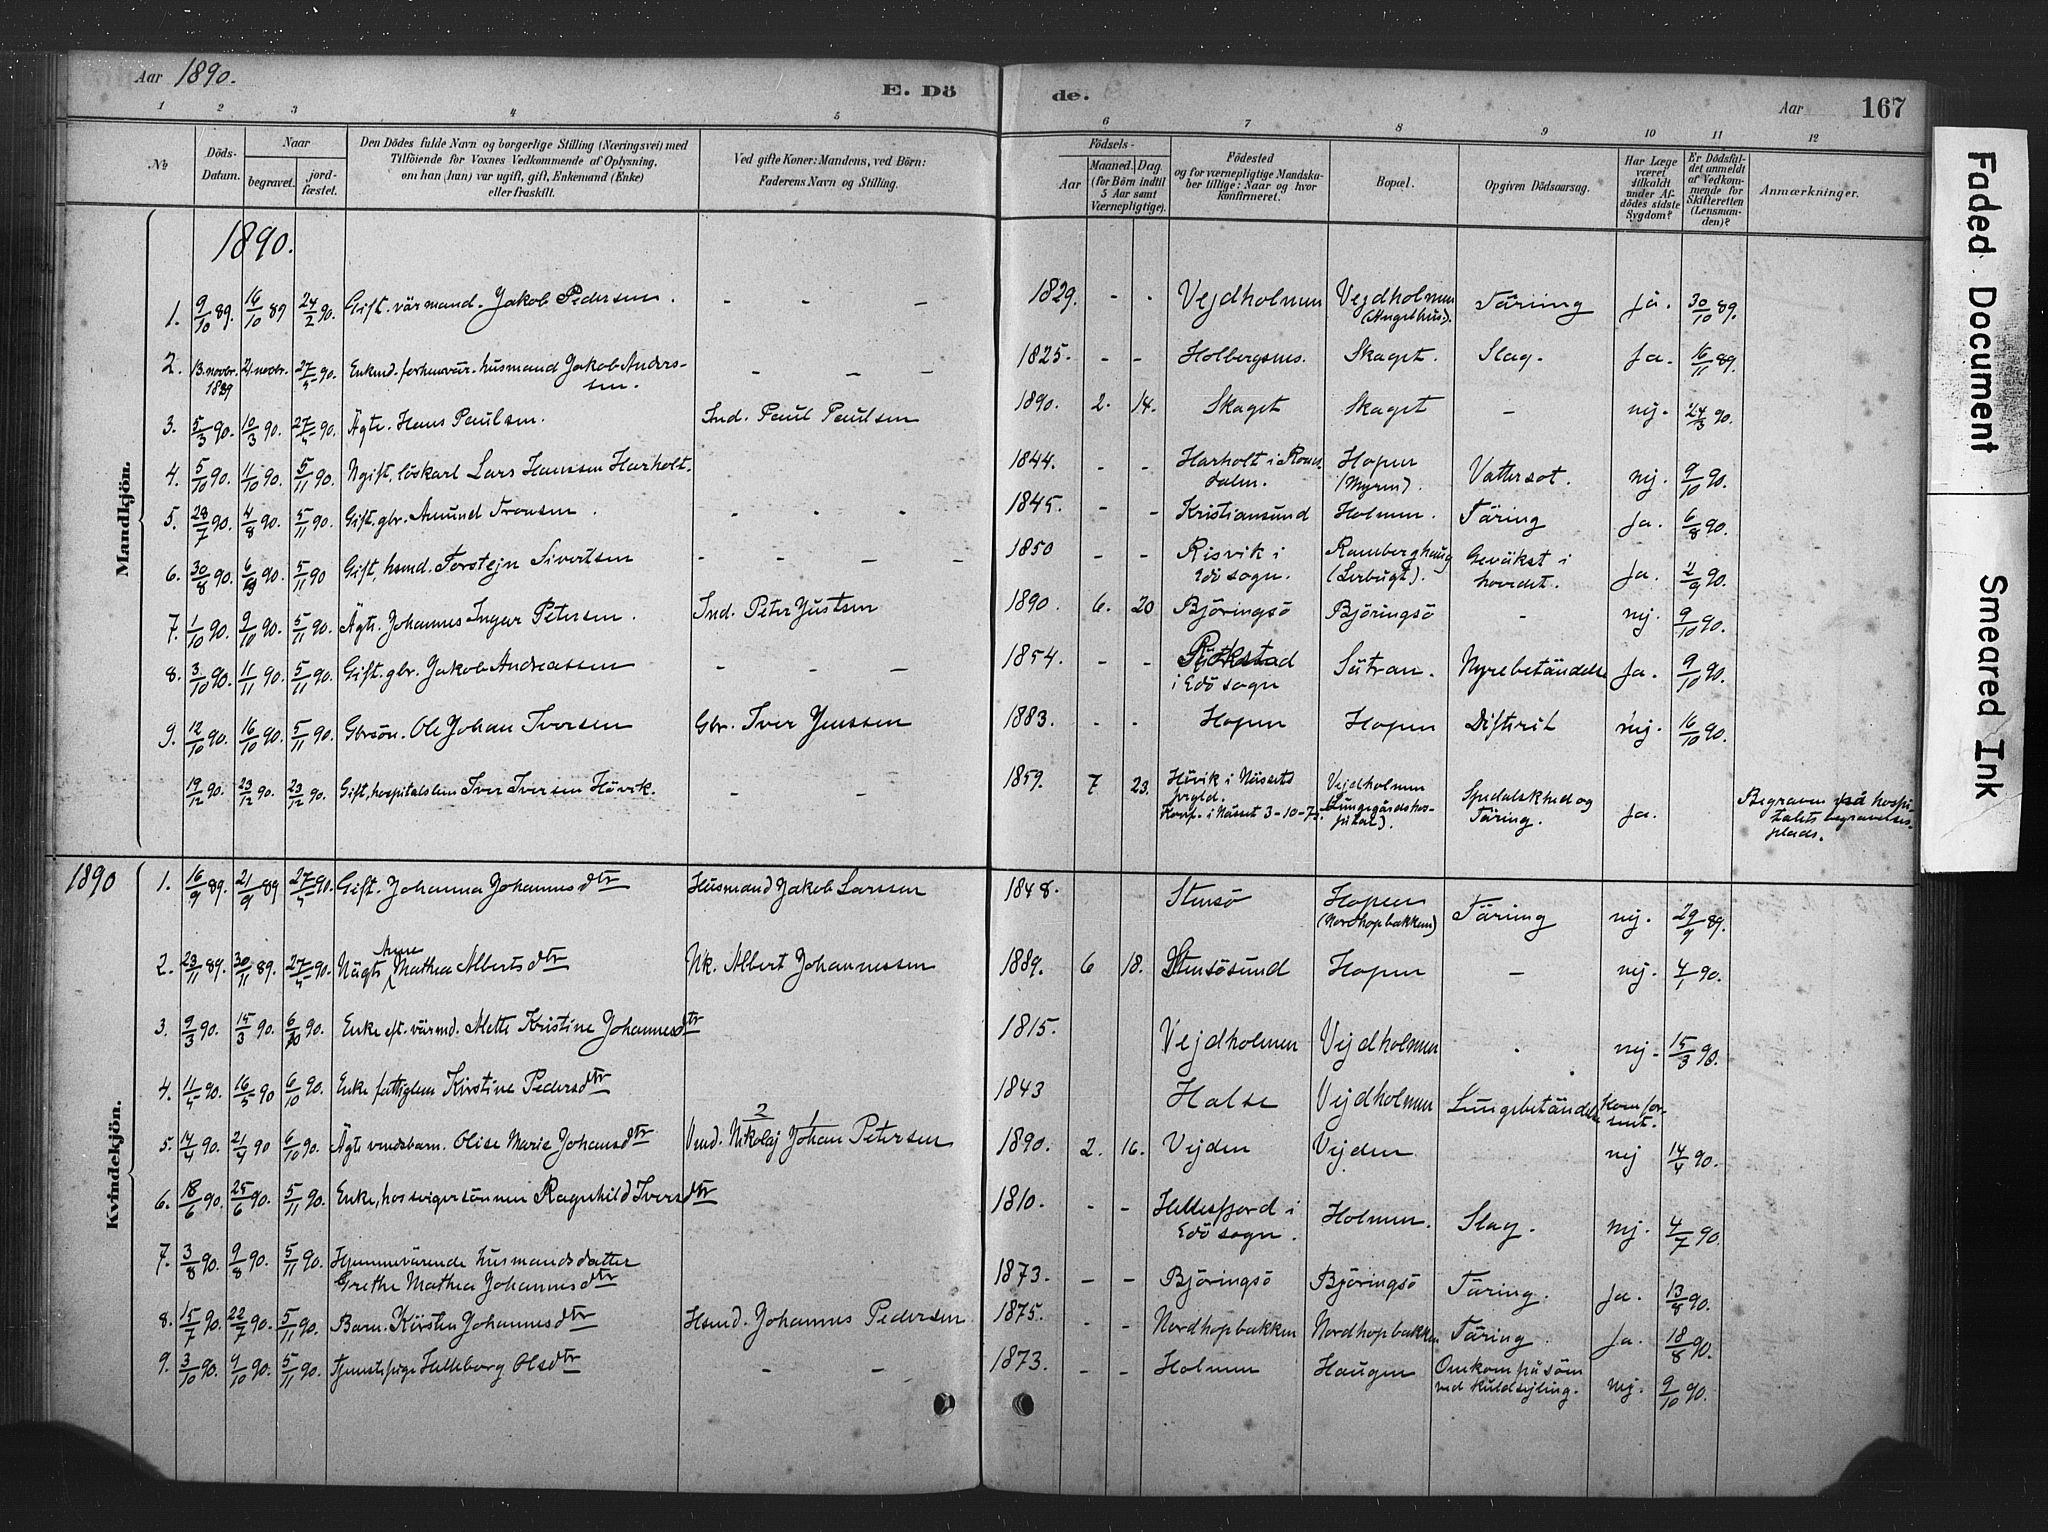 Aar 1890.
E. Döde.
Aar 167
1 2 3 4 5 6 7 8 9 10 11 12
No
Döds-Datum.
Naar
begravet.
jordfæstet.
Den Dödes fulde Navn og borgerlige Stilling (Næringsvei) med
Tilföiende for Voxnes Vedkommende af Oplysning,
om han (hun) var ugift, gift, Enkemand (Enke)
eller fraskilt.
Ved gifte Koner: Mandens, ved Börn:
Faderens Navn og Stilling.
Födsels-
Aar
Maaned. Dag.
(for Börn indtil
5 Aar samt
Værnepligtige).
Födested
og for værnepligtige Mandska-
ber tillige: Naar og hvor
konfirmeret.
Bopæl.
Opgiven Dödsaarsag.
Har Læge
været
tilkaldt
under Af-
dödes sidste
Sygdom?
Er Dödsfal-
det anmeldt
af Vedkom-
mende for
Skifteretten
(Lensman-
den)?
Anmærkninger.
Mandkjön.
1890.
1. 9/10 89. 16/10 89 24/2 90. Gift. värmand. Jakob Pedersen. - - - 1829. - - Vejdholmen Vejdholmen Täring Ja. 30/10 89.
2. 13. novbr. 1889 21 novbr. 27/5 90. Enkmd. forhenvär. husmand Jakob Anders-
sen. - - - 1825. - - Holbergsnes. Skaget. Slag. Ja. 16/11 89.
3. 5/3 90. 10/3 90. 27/5 90. Ägte. Hans Paulsen. Ind. Paul Paulsen 1890. 2. 14. Skaget Skaget - nej. 24/3 90.
4. 5/10 90. 11/10 90. 5/11 90. Ugift. löskarl Lars Hanssen Harholt. 1844. - - Harholt i Roms-
dalen. Hopen
(Myren). Vattersot. nej. 9/10 90.
5. 28/7 90. 4/8 90. 5/11 90. Gift. gbr. Amund Tronsen. - - - 1845. - - Kristiansund Holmen. Täring Ja. 6/8 90.
6. 30/8 90. 6/9 90. 5/11 90 Gift, hsmd. Torstejn Sivertsen - - - - 1850 - - Risvik i
Edö sogn. Ramberghaug
(Lerbugt). Geväkst i
hovedet. Ja. 2/9 90.
7. 1/10 90. 9/10 90. 5/11 90. Ägte. Johannes Ingar Petersen. Ind. Peter Justsen 1890. 6. 20 Björingsö Björingsö - nej. 9/10 90.
8. 3/10 90. 11/11 90. 5/11 90. Gift. gbr. Jakob Andreassen - - - 1854. - -
i Edö sogn Sätran. Nyrebetändelse Ja. 9/10 90.
9. 12/10 90. 16/10 90. 5/11 90. Gbrsön. Ole Johan Iversen Gbr. Iver Jenssen 1883. - - Hopen Hopen Difterit nej. 16/10 90.
19/12 90. 23/12 90. 23/12 90. Gift, hospitalslem Iver Iversen Hövik. - - 1859. 7 23. Hövik i Nässets
prgld.
Konf. i Nässet 3-10-75. Vejdholmen
(Lungegårdshos-
pital). Spedalskhed og
Täring. Ja. Begraven på hospi-
talets begravelses-
plads.
Kvindekjön.
1890 1. 16/9 89. 21/9 89 27/5 90. Gift. Johanna Johannesdtr Husmand Jakob Larssen 1848. Stensö Hopen
(Nordhopbakken) Täring nej. 29/9 89.
2. 23/11 89. 30/11 89. 27/5 90. Uägte Anne Mathea Albertsdtr Uk. Albert Johannessen 1889. 6 18. Stensösund Hopen - nej. 4/1 90.
3. 9/3 90. 15/3 90. 6/10 90. Enke eft. värmd. Mette Kristine Johannesdtr 1815. Vejdholmen Vejdholmen - nej. 15/3 90.
4. 11/5 90. 16/5 90 6/10 90. Enke fattiglem Kirstine Pedersdtr 1843 Halse Vejdholmen Lungebetändelse Kom for
sent.
5. 14/4 90. 21/4 90 6/10 90. Ägte Olise Marie Johansdtr Nikolaj Johan Petersen 1890. 2. 16. Vejden Vejden nej 14/4 90.
6. 18/6 90. 25/6 90. 5/11 90. Enke, hos svigersönnen Ragnhild Iversdtr 1810. - - Hellesfjord i
Edö sogn. Holmen. Slag. nej. 4/7 90.
7. 3/8 90. 9/8 90. 5/11 90. Hjemmevärende husmandsdatter
Grethe Mathea Johannesdtr 1873. - - Björingsö Björingsö Täring. Ja. 13/8 90.
8. 15/7 90. 22/7 90. 5/11 90. Barn. Kirsten Johannesdtr Hsmd. Johannes Pedersen 1875. - - Nordhopbakken Nordhopbakken Täring. Ja. 18/8 90.
9. 3/10 90. 9/10 90. 5/11 90. Tjenestepige Helleborg Olsdtr - - 1873. - - Holmen Haugen Omkom på söen
ved kuldsejling. nej. 9/10 90.
Faded Document
Smeared Ink